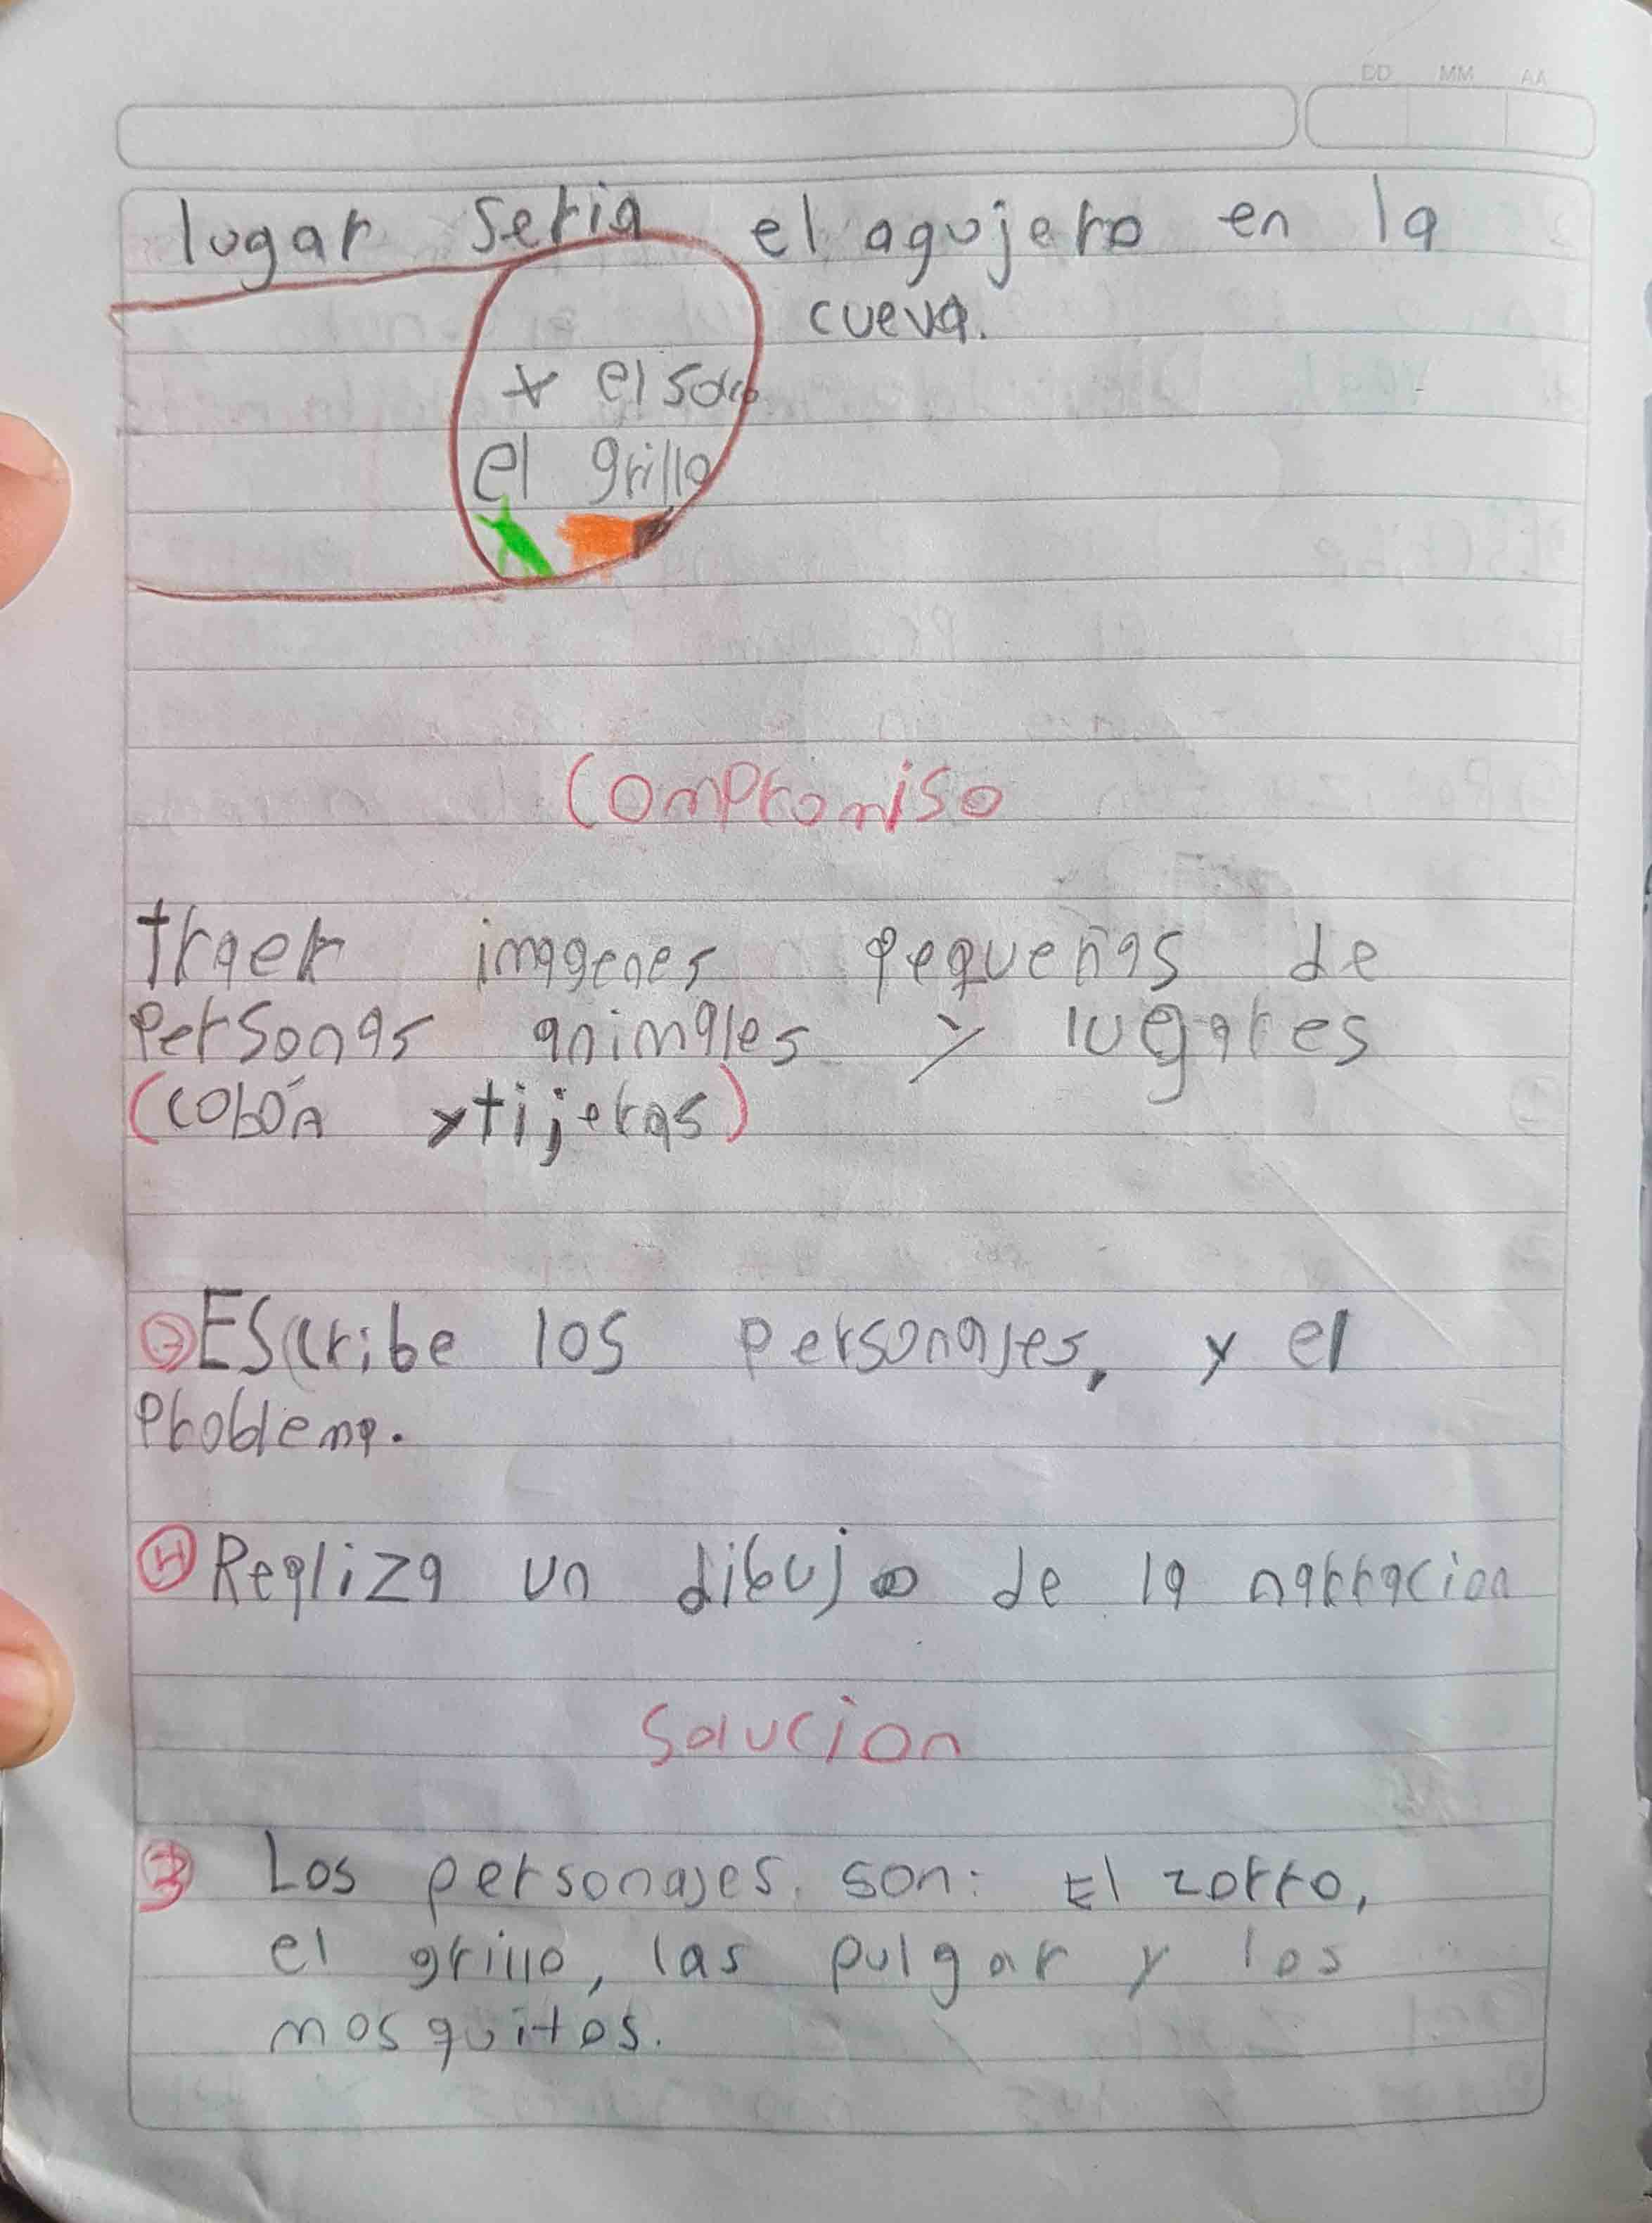 DD MM AA
lugar seria el agujero en la
cueva.
x el
el grillo
Compromiso
traer imagenes pequeñas de
personas animales y lugares
(colbón y tijeras)
Escribe los personajes, y el
problema.
④ Realiza un dibujo de la narracion
Solucion
3 Los personajes son: El zorro,
el grillo, las pulgar y los
mosquitos.